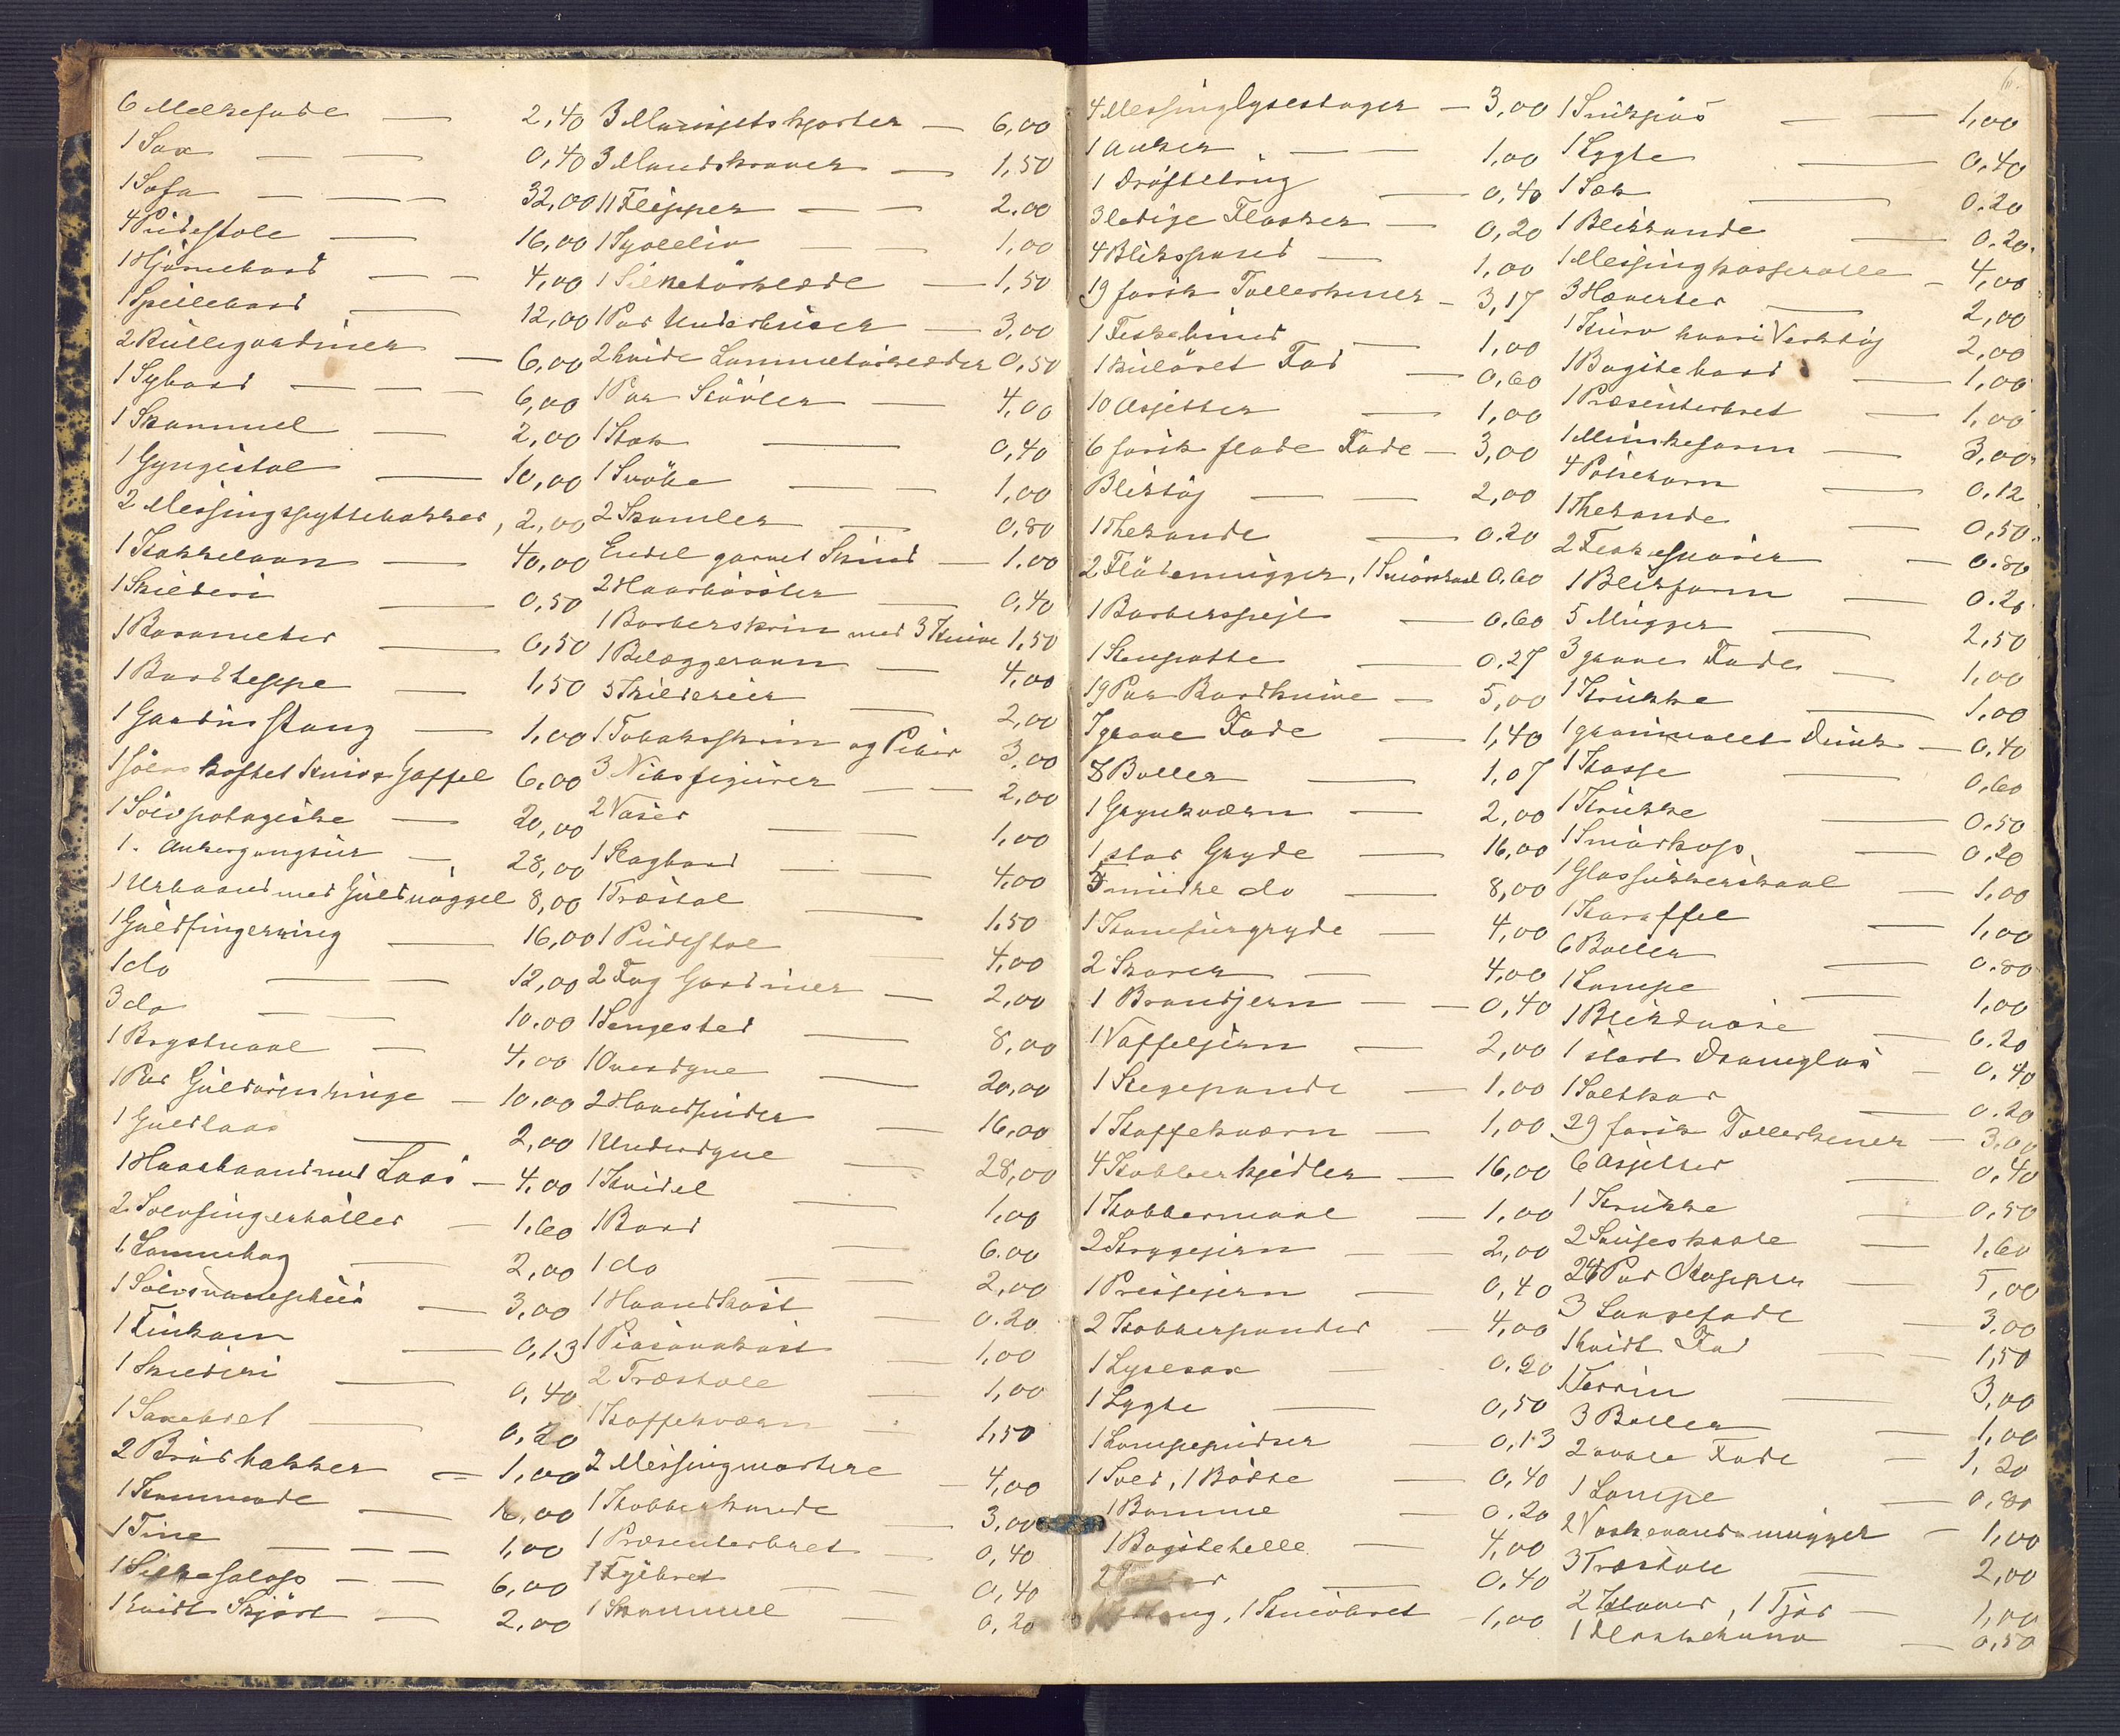 6 Melkefade — 2,40
1 Sax — — 0,40
1 Sofa — — — 32,00
4 Pudestole — 16,00
1 Hjørnebord — — 4,00
1 Speilebord — 12,00
2 Rullegardiner — 6,00
1 Sybord — — 6,00
1 Skammel — 2,00
1 Gyngestol — 10,00
2 Messingspyttebakker, 2,00
1 Kakkelovn — 40,00
1 Skilderi — 0,50
1 Barometer — 0,50
1 Bordteppe — 1,50
1 Gardinstang — 1,00
1 sølvskaftet Kniv & Gaffel 6,00
1 Sølvpotageske — 20,00
1. Ankergangsur — 28,00
1 Urbaand med Guldnøggel 8,00
1 Guldfingerring — 16,00
1 do — — 12,00
3 do — — 10.00
1 Brystnaal — 4,00
1 Par Guldørenringe — 10,00
1 Guldlaas — 2,00
1 Haarbaand med Laas — 4,00
2 Sølvfingerbøller — 1,60
1 Lommebog — 2,00
1 Sølvsvampehus — 3,00
1 Finkam — 0,13
1 Skilderi — 0,40
1 Saxebret — 0,20
2 Brødbakker — 1,00
1 Kommode — 16,00
1 Tine — — — 1,00
1 Silkesalop — — 6,00
1 hvidt Skjørt — 2,00
3 Mansjetskjorter — 6,00
3 Mandskraver — 1,50
11 Flipper — — 2.00
1 — — 1,00
1 Silketørklæde — 1,50
1 Par Underbuxer — 3,00
2 hvide Lommetørklæder 0,50
1 Par Støvler — 4,00
1 Stok — 0,40
1 Svøbe — — 1,00
2 Skamler — 0,80
Endel garvet Skind — 1.00
2 Haarbørster — 0,40
1 Barberskrin med 3 Knive 1,50
1 Bilæggerovn — 4,00
5 Skilderier — 2,00
1 Tobaksskrin og Piber 3,00
3 Nibsfigurer — — 2,00
2 Vaser — — 1,00
1 Slagbord — 4,00
1 Træstol — 1,50
1 Pudestol — 4,00
2 Fag Gardiner — 2,00
1 Sengested — 8,00
1 Overdyne — 20,00
2 Hovedpuder — 16,00
1 Underdyne — 28,00
1 Hvidel — 1,00
1 Bord — 6.00
1 do — 2,00
1 Haandkost — 0.20
1 Piasavakost — 1,00
2 Træstole — 1,00
1 Kaffekværn — 1,50
2 Messingmortere — 4,00
1 Kobberkande — 3,00
1 Præsenterbret — 0,40
1 Fjelbret — — 0,40
1 Skammel — 0,20
4 Messinglysestager — 3,00
1 Anker — — 1,00
1 Drøftetrug — 0,40
3 ledige Flasker — 0,20
4 Blikspand — 1,00
19 forsk Tallerkener — 3,17
1 — 1,00
1 kuløret Fad — 0,60
10 Asjetter — 1,00
6 forsk flade Fade — 3,00
Bliktøj — — 2,00
1 Thekande — 0.20
2 Flødemugger, 1 Smørskaal 0,60
1 Barberspejl — 0.60
1 Stenpotte — 0.27
19 Par Bordknive — 5,00
7 graae Fade — 1,40
8 Boller — 1,07
1 Grynkværn — 2,00
1 stor Gryde — 16,00
5 mindre do — 8,00
1 Komfurgryde — 4,00
2 Skorer — 4,00
1 Brandjern — — 0,40
1 Vaffeljern — 2,00
1 Stegepande — 1,00
1 Kaffekværn — 1,00
4 Kobberkjedler — 16,00
1 Kobbermaal — 1,00
2 Strygejern — — 2,00
1 Pressejern — 0,40
2 Kobberpander — 4,00
1 Lysesax — 0.20
1 Lygte — 0,50
1 Lampepudser — 0,13
1 Sold, 1 Bøtte — 0,40
1 Bomme — 0.20
1 Bagstehelle — 4,00
2 — 0,40
1 Knivbret — 1,00
6.
1 Snushus — — 1,00
1 Lygte — 0,40
1 Sæk — 0.20
1 Blikkande — 0.20
1 Messingkasserolle — 4,00
3 Hæverter — 2,00
1 Kurv hvori Verktøj 2,00
1 Bagstebord — 1,00
1 Præsenterbret — 1,00
1 Munkeform — 3,00
4 — 0.12
1 Thekande — 0,50
2 Fiskespader — 0.80
1 Blikform — 0.20
5 Mugger — 2,50
3 graae Fade — 1,00
1 Krukke — 1,00
1 grønmalet Dunk — 0,40
1 Kasse — 0,60
1 Krukke — 0.50
1 Smørkop — 0.20
1 Glassukkerskaal — 1,00
1 Karaffel — 1,00
6 Boller — 0.80
1 Lampe — 1,00
1 Blikdaase — 0.20
1 stort Dramglas — 0,40
1 Saltkar — 0.20
29 forsk Tallerkener — 3,00
6 Asjetter — 0,40
1 Krukke — 0,50
2 Sauseskaale — 1,60
24 Par Kopper — 5,00
3 Sausefade — 3,00
1 hvidt Fad — — 1,50
1 Terrin — 3,00
3 Boller — 1,00
2 ovale Fade — 1,20
1 Lampe — 0,80
2 Vaskevandsmugger — 1,00
3 Træstole — 2,00
2 Klaver, 1 Tjor — 1,00
1 — 0,50